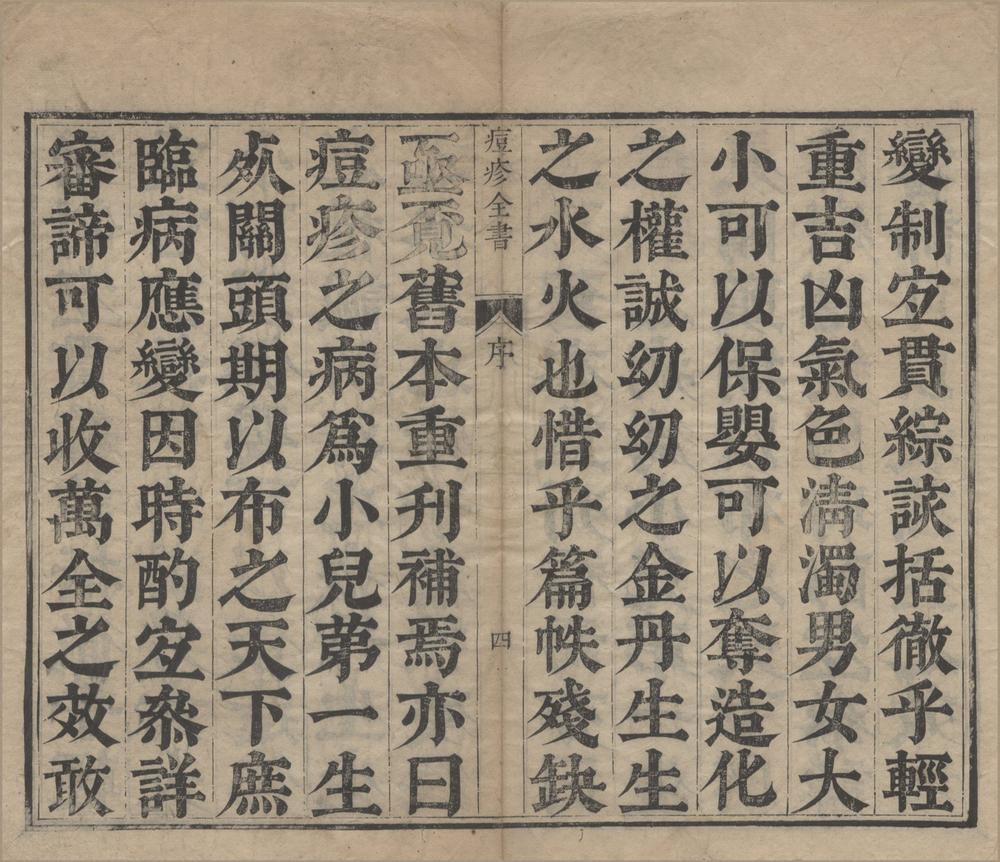 變制宜貫綜談括徹乎輕
重吉凶氣色清濁男女大
小可以保嬰可以奪造化
之權誠幼幼之金丹生生
之水火也惜乎篇帙殘缺
痘疹全書
序
四
亟覓舊本重刋補焉亦曰
痘疹之病爲小兒苐一生
死關頭期以布之天下庶
臨病應變因時酌宜叅詳
審諦可以收萬全之效敢